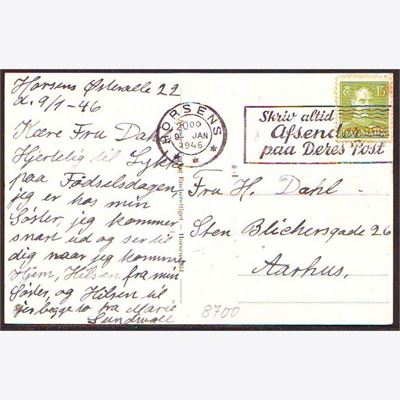 Horsens Østeralle 22
d. 9/1-46
Kære Fru Dahl
Hjertelig til Lykke
paa Fødselsdagen
jeg er hos min
Søster, jeg kommer
snart ud og ser til
dig naar jeg kommer
Hjem, Hilsen fra min
Søster, og Hilsen til
jer begge to fra Marie
Lundvall
HORSENS
JAN
1946
15
Skriv altid
Afsender
paa Deres Post
Fru H. Dahl
Sten Blichersgade 26
Aarhus.
8700